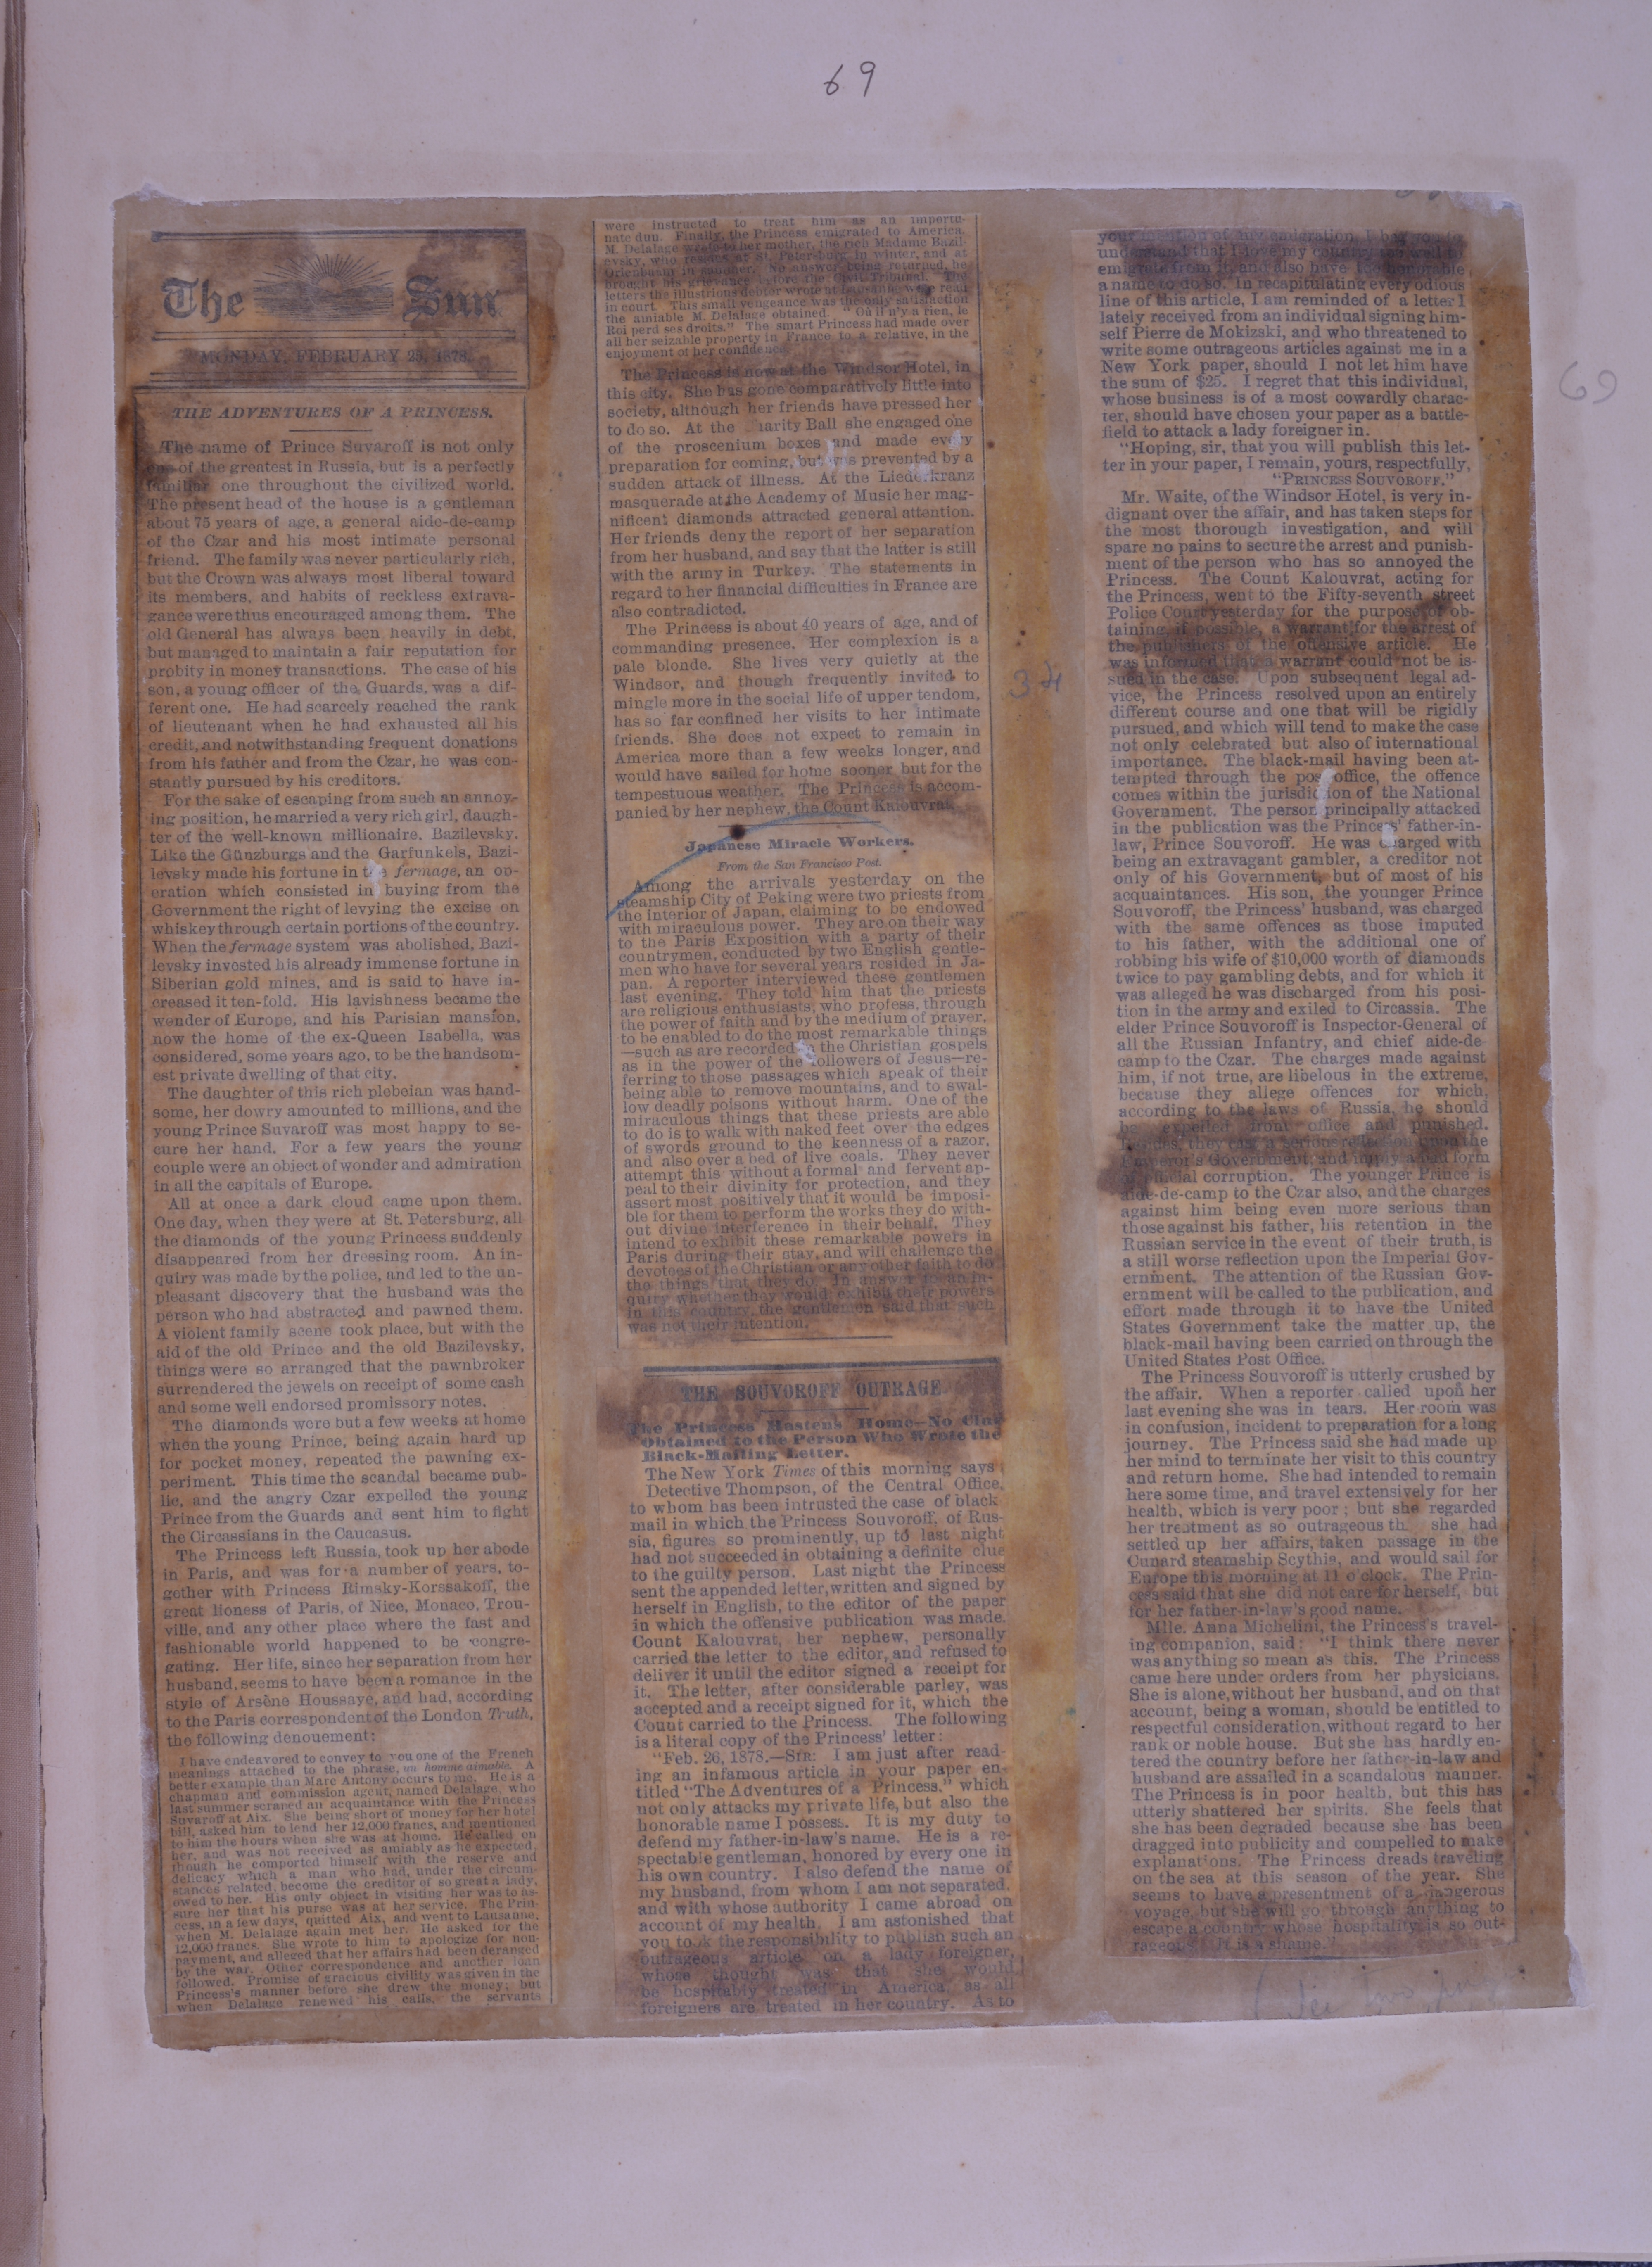 69
The Sun
MONDAY, FEBRUARY 25, 1878.
THE ADVENTURES OF A PRINCESS.
The name of Prince Suvaroff is not only
one of the greatest in Russia, but is a perfectly
familiar one throughout the civilized world.
The present head of the house is a gentleman
about 75 years of age, a general aide-de-camp
of the Czar and his most intimate personal
friend. The family was never particularly rich,
but the Crown was always most liberal toward
its members, and habits of reckless extrava-
gance were thus encouraged among them. The
old General has always been heavily in debt,
but managed to maintain a fair reputation for
probity in money transactions. The case of his
son, a young officer of the Guards, was a dif-
ferent one. He had scarcely reached the rank
of lieutenant when he had exhausted all his
credit, and notwithstanding frequent donations
from his father and from the Czar, he was con-
stantly pursued by his creditors.
For the sake of escaping from such an annoy-
ing position, he married a very rich girl, daugh-
ter of the well-known millionaire, Bazilevsky.
Like the Günzburgs and the Garfunkels, Bazi-
levsky made his fortune in the fermage, an op-
eration which consisted in buying from the
Government the right of levying the excise on
whiskey through certain portions of the country.
When the fermage system was abolished, Bazi-
levsky invested his already immense fortune in
Siberian gold mines, and is said to have in-
creased it ten-fold. His lavishness became the
wonder of Europe, and his Parisian mansion,
now the home of the ex-Queen Isabella, was
considered, some years ago, to be the handsom-
est private dwelling of that city.
The daughter of this rich plebeian was hand-
some, her dowry amounted to millions, and the
young Prince Suvaroff was most happy to se-
cure her hand. For a few years the young
couple were an object of wonder and admiration
in all the capitals of Europe.
All at once a dark cloud came upon them.
One day, when they were at St. Petersburg, all
the diamonds of the young Princess suddenly
disappeared from her dressing room. An in-
quiry was made by the police, and led to the un-
pleasant discovery that the husband was the
person who had abstracted and pawned them.
A violent family scene took place, but with the
aid of the old Prince and the old Bazilevsky,
things were so arranged that the pawnbroker
surrendered the jewels on receipt of some cash
and some well endorsed promissory notes.
The diamonds were but a few weeks at home
when the young Prince, being again hard up
for pocket money, repeated the pawning ex-
periment. This time the scandal became pub-
lic, and the angry Czar expelled the young
Prince from the Guards and sent him to fight
the Circassians in the Caucasus.
The Princess left Russia, took up her abode
in Paris, and was for a number of years, to-
gether with Princess Rimsky-Korssakoff, the
great lioness of Paris, of Nice, Monaco, Trou-
ville, and any other place where the fast and
fashionable world happened to be congre-
gating. Her life, since her separation from her
husband, seems to have been a romance in the
style of Arsène Houssaye, and had, according
to the Paris correspondent of the London Truth,
the following denouement:
I have endeavored to convey to you one of the French
meanings attached to the phrase, un homme aimable. A
better example than Marc Antony occurs to me. He is a
chapman and commission agent, named Delalage, who
last summer scraped an acquaintance with the Princess
Suvaroff at Aix. She being short of money for her hotel
bill, asked him to lend her 12,000 francs, and mentioned
to him the hours when she was at home. He called on
her, and was not received as amiably as he expected,
though he comported himself with the reserve and
delicacy which a man who had, under the circum-
stances related, become the creditor of so great a lady,
owed to her. His only object in visiting her was to as-
sure her that his purse was at her service. The Prin-
cess, in a few days, quitted Aix, and went to Lausanne,
when M. Delalage again met her. He asked for the
12,000 francs. She wrote to him to apologize for non-
payment, and alleged that her affairs had been deranged
by the war. Other correspondence and another loan
followed. Promise of gracious civility was given in the
Princess's manner before she drew the money; but
when Delalage renewed his calls, the servants
were instructed to treat him as an importu-
nate dun. Finally, the Princess emigrated to America.
M. Delalage wrote to her mother, the rich Madame Bazil-
evsky, who resides at St. Petersburg in winter, and at
Orlenbaum in summer. No answer being returned, he
brought his grievance before the Civil Tribunal. The
letters the illustrious debtor wrote at Lausanne were read
in court. This small vengeance was the only satisfaction
the amiable M. Delalage obtained. "Où il n'y a rien, le
Roi perd ses droits." The smart Princess had made over
all her seizable property in France to a relative, in the
enjoyment of her confidence.
The Princess is now at the Windsor Hotel, in
this city. She has gone comparatively little into
society, although her friends have pressed her
to do so. At the Charity Ball she engaged one
of the proscenium boxes and made every
preparation for coming, but was prevented by a
sudden attack of illness. At the Liederkranz
masquerade at the Academy of Music her mag-
nificent diamonds attracted general attention.
Her friends deny the report of her separation
from her husband, and say that the latter is still
with the army in Turkey. The statements in
regard to her financial difficulties in France are
also contradicted.
The Princess is about 40 years of age, and of
commanding presence. Her complexion is a
pale blonde. She lives very quietly at the
Windsor, and though frequently invited to
mingle more in the social life of upper tendom,
has so far confined her visits to her intimate
friends. She does not expect to remain in
America more than a few weeks longer, and
would have sailed for home sooner but for the
tempestuous weather. The Princess is accom-
panied by her nephew, the Count Kalouvrat.
Japanese Miracle Workers.
From the San Francisco Post.
Among the arrivals yesterday on the
steamship City of Peking were two priests from
the interior of Japan, claiming to be endowed
with miraculous power. They are on their way
to the Paris Exposition with a party of their
countrymen, conducted by two English gentle-
men who have for several years resided in Ja-
pan. A reporter interviewed these gentlemen
last evening. They told him that the priests
are religious enthusiasts, who profess, through
the power of faith and by the medium of prayer,
to be enabled to do the most remarkable things
—such as are recorded in the Christian gospels
as in the power of the followers of Jesus—re-
ferring to those passages which speak of their
being able to remove mountains, and to swal-
low deadly poisons without harm. One of the
miraculous things that these priests are able
to do is to walk with naked feet over the edges
of swords ground to the keenness of a razor,
and also over a bed of live coals. They never
attempt this without a formal and fervent ap-
peal to their divinity for protection, and they
assert most positively that it would be imposi-
ble for them to perform the works they do with-
out divine interference in their behalf. They
intend to exhibit these remarkable powers in
Paris during their stay, and will challenge the
devotees of the Christian or any other faith to do
the things that they do. In answer to an in-
quiry whether they would exhibit their powers
in this country, the gentlemen said that such
was not their intention.
34
THE SOUVOROFF OUTRAGE
The Princess Hastens Home—No Clue
Obtained to the Person Who Wrote the
Black-Mailing Letter.
The New York Times of this morning says:
Detective Thompson, of the Central Office,
to whom has been intrusted the case of black
mail in which the Princess Souvoroff, of Rus-
sia, figures so prominently, up to last night
had not succeeded in obtaining a definite clue
to the guilty person. Last night the Princess
sent the appended letter, written and signed by
herself in English, to the editor of the paper
in which the offensive publication was made.
Count Kalouvrat, her nephew, personally
carried the letter to the editor, and refused to
deliver it until the editor signed a receipt for
it. The letter, after considerable parley, was
accepted and a receipt signed for it, which the
Count carried to the Princess. The following
is a literal copy of the Princess' letter:
"Feb. 26, 1878.—SIR: I am just after read-
ing an infamous article in your paper en-
titled "The Adventures of a Princess," which
not only attacks my private life, but also the
honorable name I possess. It is my duty to
defend my father-in-law's name. He is a re-
spectable gentleman, honored by every one in
his own country. I also defend the name of
my husband, from whom I am not separated,
and with whose authority I came abroad on
account of my health. I am astonished that
you took the responsibility to publish such an
outrageous article on a lady foreigner,
whose thought was that she would
be hospitably treated in America as all
foreigners are treated in her country. As to
your mention of my emigration, I beg you to
understand that I love my country too well to
emigrate from it, and also have too honorable
a name to do so. In recapitulating every odious
line of this article, I am reminded of a letter I
lately received from an individual signing him-
self Pierre de Mokizski, and who threatened to
write some outrageous articles against me in a
New York paper, should I not let him have
the sum of $25. I regret that this individual,
whose business is of a most cowardly charac-
ter, should have chosen your paper as a battle-
field to attack a lady foreigner in.
"Hoping, sir, that you will publish this let-
ter in your paper, I remain, yours, respectfully,
"PRINCESS SOUVOROFF."
Mr. Waite, of the Windsor Hotel, is very in-
dignant over the affair, and has taken steps for
the most thorough investigation, and will
spare no pains to secure the arrest and punish-
ment of the person who has so annoyed the
Princess. The Count Kalouvrat, acting for
the Princess, went to the Fifty-seventh street
Police Court yesterday for the purpose of ob-
taining, if possible, a warrant for the arrest of
the publishers of the offensive article. He
was informed that a warrant could not be is-
sued in the case. Upon subsequent legal ad-
vice, the Princess resolved upon an entirely
different course and one that will be rigidly
pursued, and which will tend to make the case
not only celebrated but also of international
importance. The black-mail having been at-
tempted through the post office, the offence
comes within the jurisdiction of the National
Government. The person principally attacked
in the publication was the Princess' father-in-
law, Prince Souvoroff. He was charged with
being an extravagant gambler, a creditor not
only of his Government, but of most of his
acquaintances. His son, the younger Prince
Souvoroff, the Princess' husband, was charged
with the same offences as those imputed
to his father, with the additional one of
robbing his wife of $10,000 worth of diamonds
twice to pay gambling debts, and for which it
was alleged he was discharged from his posi-
tion in the army and exiled to Circassia. The
elder Prince Souvoroff is Inspector-General of
all the Russian Infantry, and chief aide-de-
camp to the Czar. The charges made against
him, if not true, are libelous in the extreme,
because they allege offences for which,
according to the laws of Russia, he should
be expelled from office and punished.
Besides, they cast a serious reflection upon the
Emperor's Government, and imply a bad form
of official corruption. The younger Prince is
aide-de-camp to the Czar also, and the charges
against him being even more serious than
those against his father, his retention in the
Russian service in the event of their truth, is
a still worse reflection upon the Imperial Gov-
ernment. The attention of the Russian Gov-
ernment will be called to the publication, and
effort made through it to have the United
States Government take the matter up, the
black-mail having been carried on through the
United States Post Office.
The Princess Souvoroff is utterly crushed by
the affair. When a reporter called upon her
last evening she was in tears. Her room was
in confusion, incident to preparation for a long
journey. The Princess said she had made up
her mind to terminate her visit to this country
and return home. She had intended to remain
here some time, and travel extensively for her
health, which is very poor; but she regarded
her treatment as so outrageous th she had
settled up her affairs, taken passage in the
Cunard steamship Scythia, and would sail for
Europe this morning at 11 o'clock. The Prin-
cess said that she did not care for herself, but
for her father-in-law's good name.
Mlle. Anna Michelini, the Princess's travel-
ing companion, said: "I think there never
was anything so mean as this. The Princess
came here under orders from her physicians.
She is alone, without her husband, and on that
account, being a woman, should be entitled to
respectful consideration, without regard to her
rank or noble house. But she has hardly en-
tered the country before her father-in-law and
husband are assailed in a scandalous manner.
The Princess is in poor health, but this has
utterly shattered her spirits. She feels that
she has been degraded because she has been
dragged into publicity and compelled to make
explanations. The Princess dreads traveling
on the sea at this season of the year. She
seems to have a presentment of a dangerous
voyage, but she will go through anything to
escape a country whose hospitality is so out-
rageous. It is a shame."
69